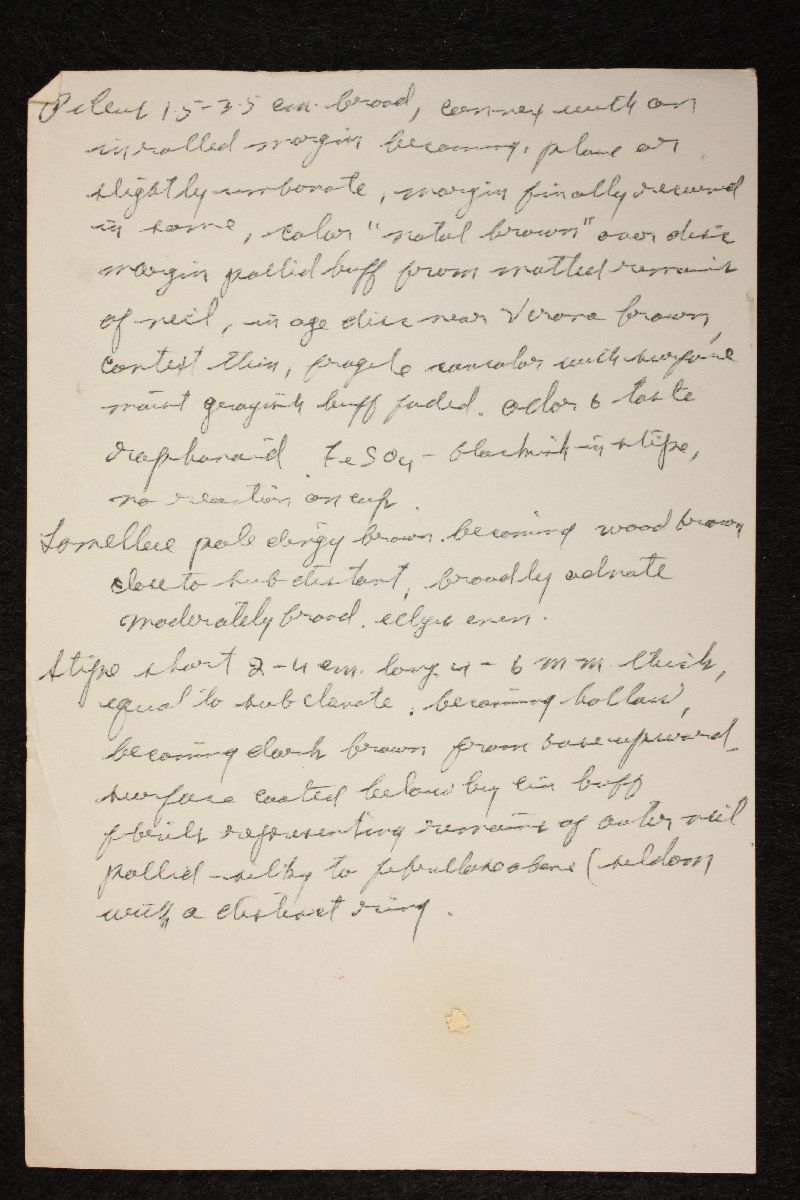 Pileus 1.5-3.5 cm. broad, convex with an
inrolled margin becoming, plane or
slightly umbonate, margin finally recurved
in some, color "natal brown" over disc
margin pallid buff from matted remains
of veil, in age disc near Verona brown,
context thin, fragile concolor with surface
moist grayish buff faded. odor & taste
raphanoid FeSO4 - blackish in stipe,
no reaction on cap.
Lamellae pale dingy brown becoming wood brown
close to subdistant, broadly adnate
moderately broad. edges even.
Stipe short 2-4 cm. long 4-6 mm. thick,
equal to subclavate, becoming hollow,
becoming dark brown from base upward
surface coated below by buff
fibrils representing remains of outer veil
pallid-silky to fibrillose above (seldom
with a distinct ring.